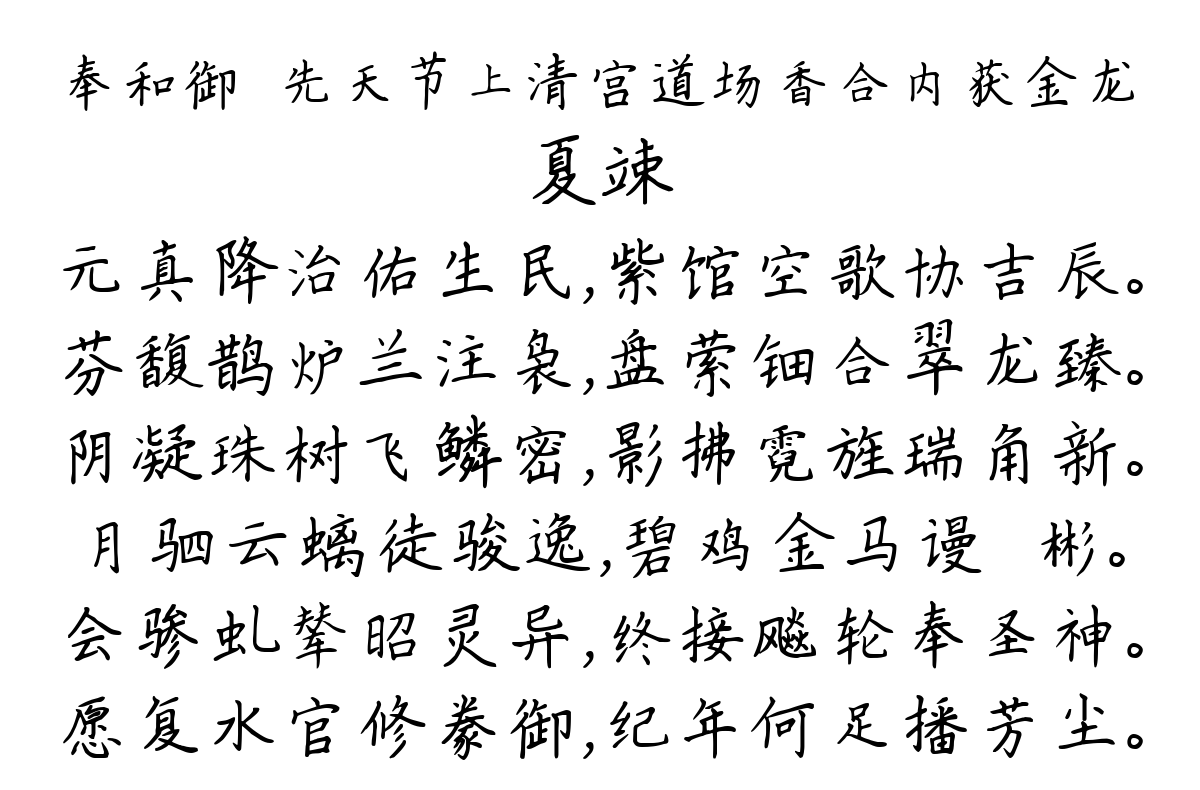 奉和御 先天节上清宫道场香合内获金龙
夏竦
元真降治佑生民,紫馆空歌协吉辰。
芬馥鹊炉兰注袅,盘萦钿合翠龙臻。
阴凝珠树飞鳞密,影拂霓旌瑞角新。
月驷云螭徒骏逸,碧鸡金马谩 彬。
会骖虬辇昭灵异,终接飚轮奉圣神。
愿复水官修豢御,纪年何足播芳尘。